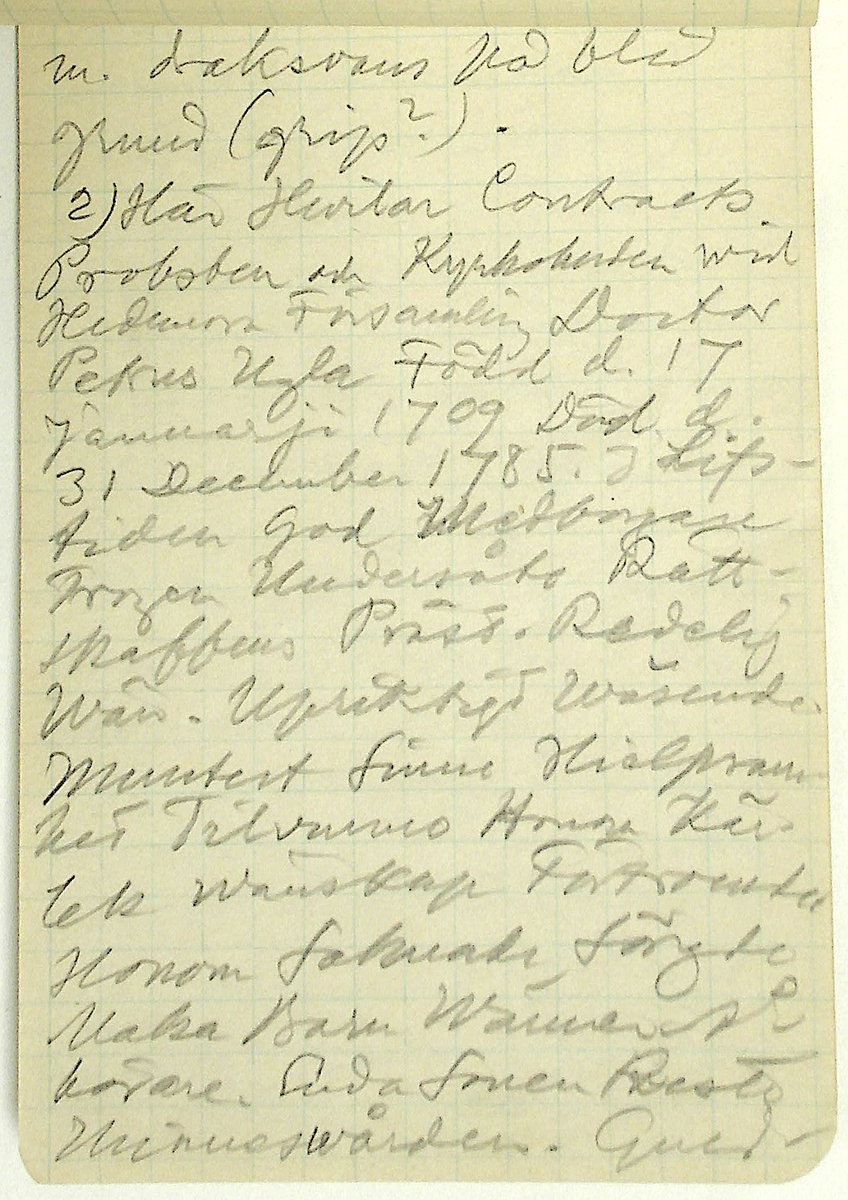 m. draksvans på blå
grund (grip?).
2) Här Hvilar Contracts
Probsten och Kyrkoherden wid
Hedemora Församling Doctor
Petrus Ugla Född d. 17
Januarji 1709 Död d.
31 December 1785. I Lifs-
tiden God Medborgare
Trogen Undersåte Rätt-
skaffens Präst. Redelig
Wän. Upriktigt Wäsende
Muntert Sinne Hielpsam-
het Tilvunno Honom Kär-
lek Wänskap Förtroende
Honom Saknade Sörgde
Maka Barn Wänner Å
hörare. Enda Sonen Reste
Minneswården. Gud-